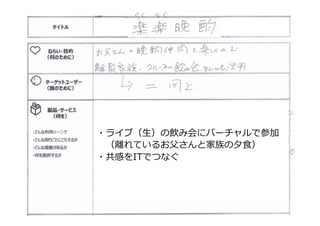 らく らく
タイトル
楽楽晩酌
ねらい・目的
(何のために)
お父さんの晩酌(仲間)と楽しむ
離散家族、
ターゲットユーザー
(誰のために)
→ = 同上
製品・サービス
(何を)
・ライブ(生)の飲み会にバーチャルで参加
(離れているお父さんと家族の夕食)
・共感をITでつなぐ
-どんな利用シーンで
-どんな部分にとどけるか
-どんな感動があるか
-何を提供するか